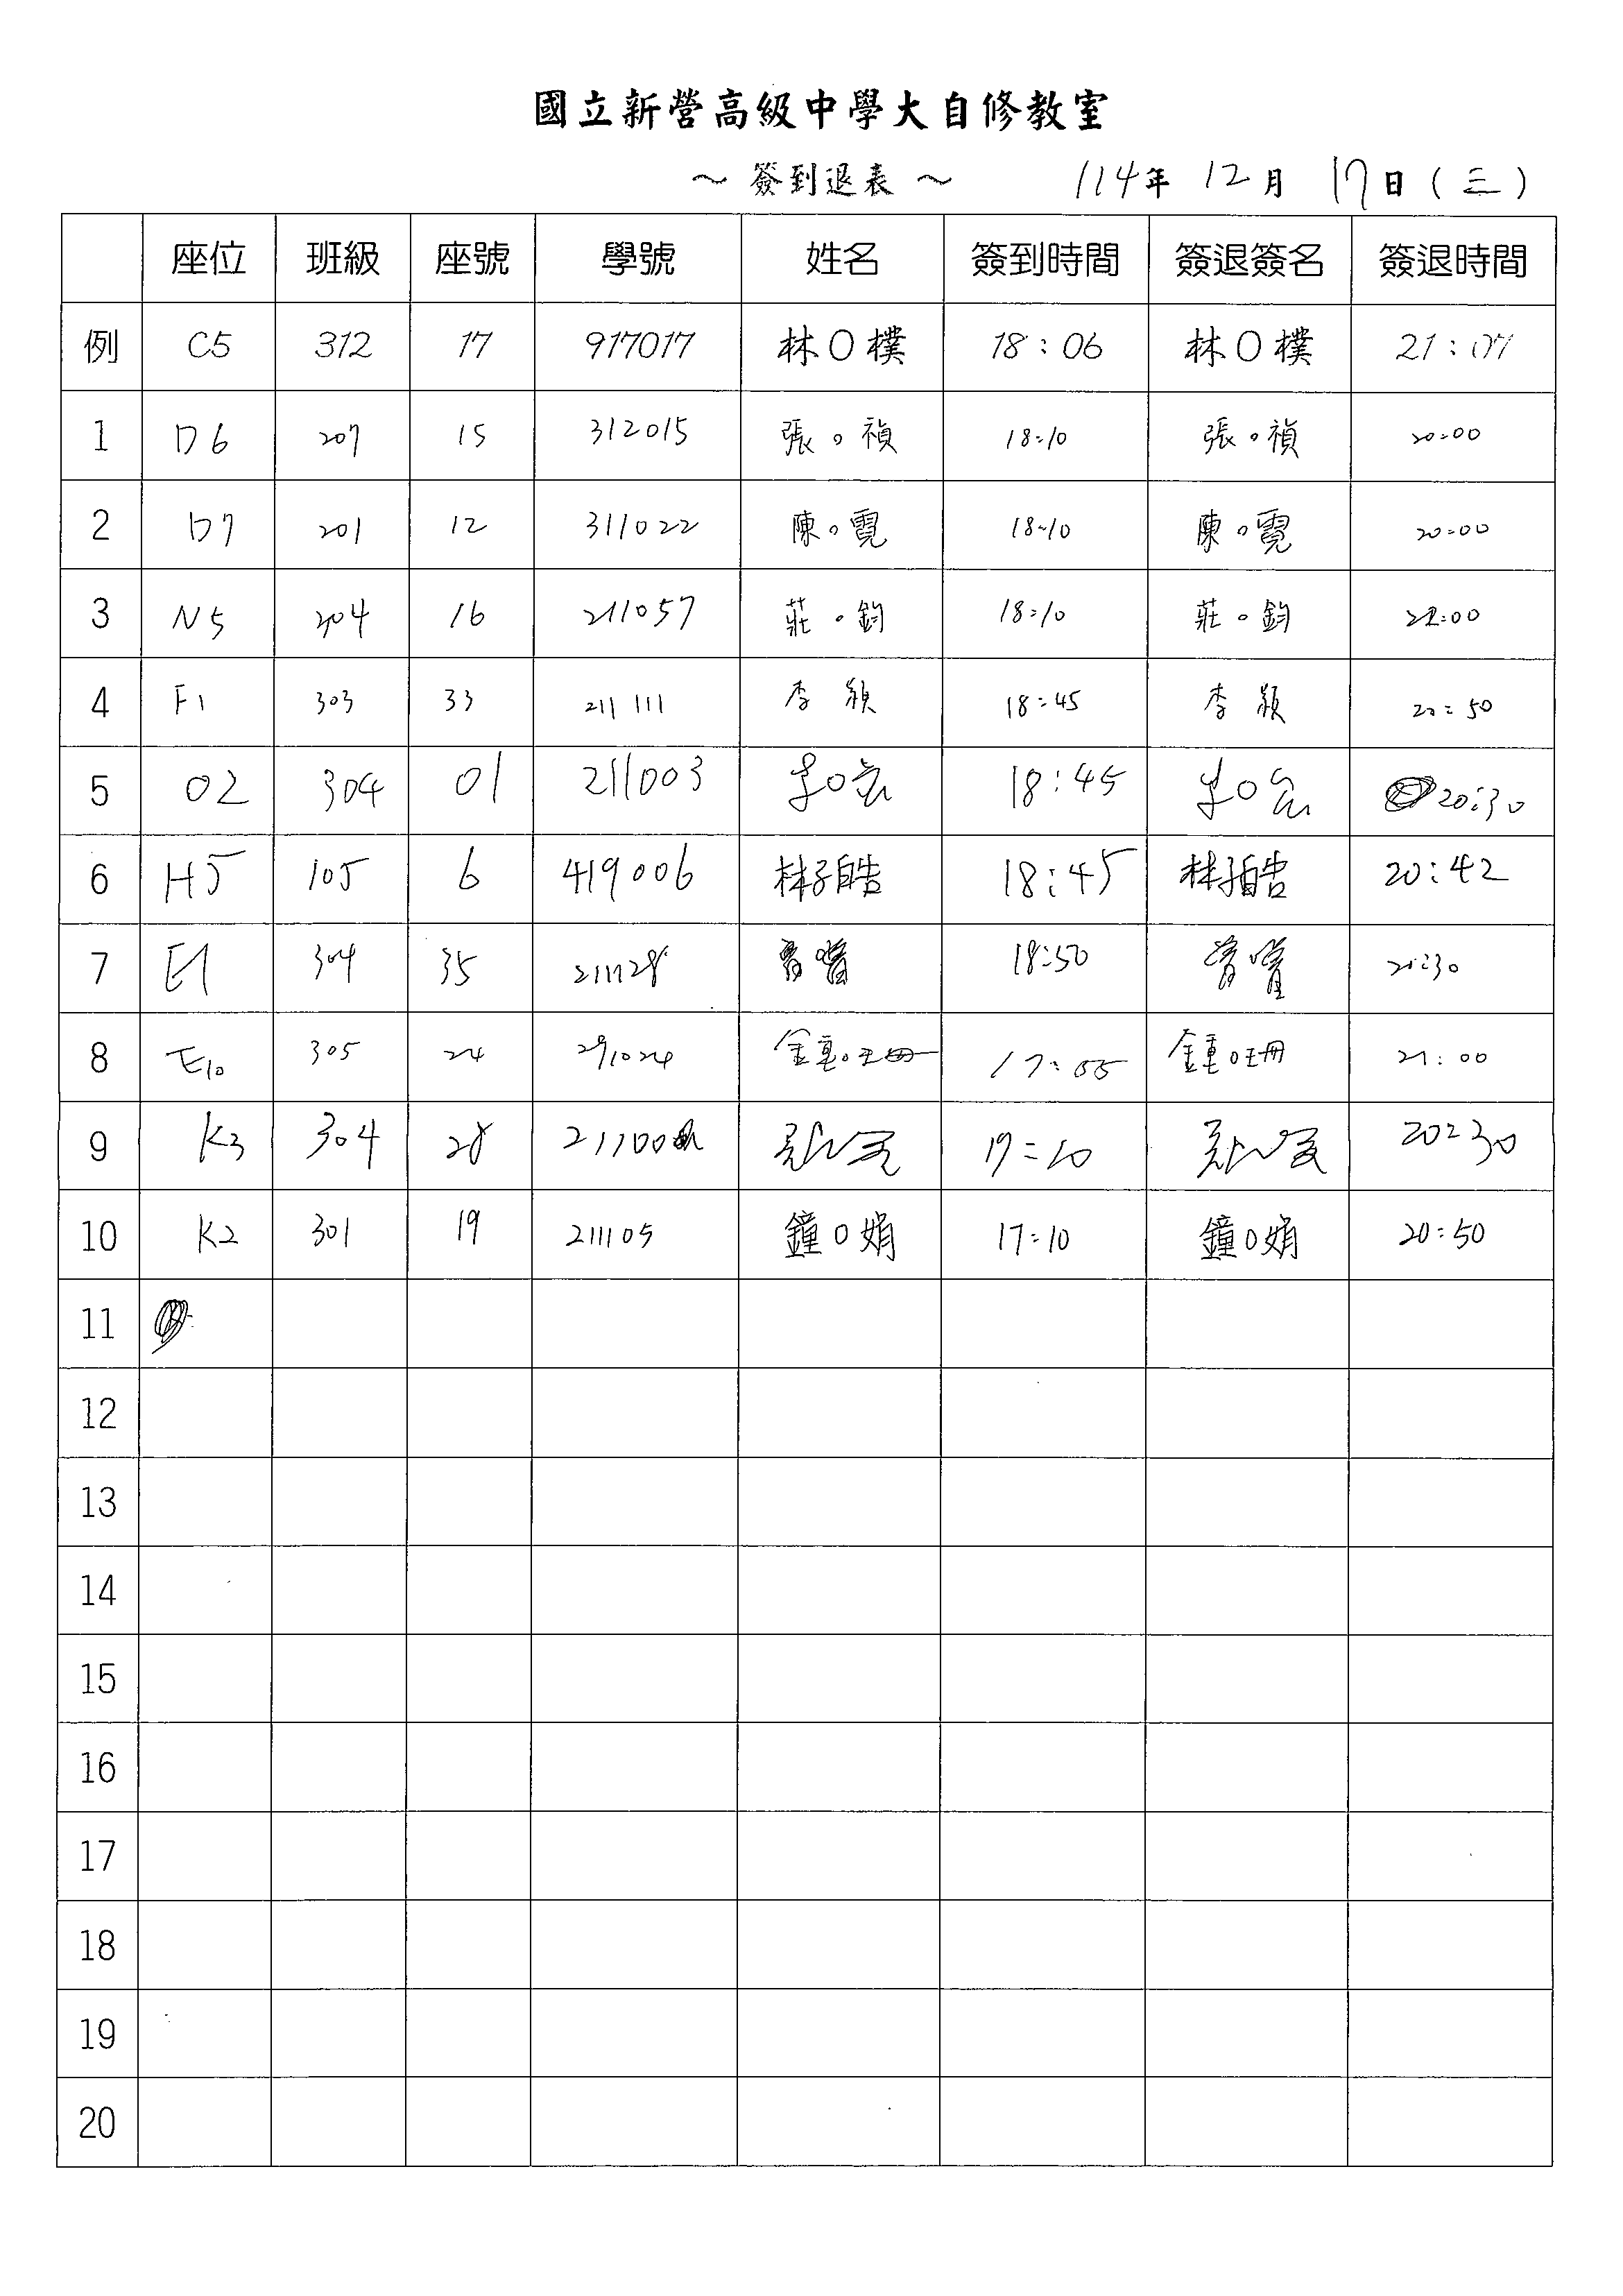 國立新營高級中學大自修教室
～ 簽到退表 ～ 114年 12月 17日(三)
座位 班級 座號 學號 姓名 簽到時間 簽退簽名 簽退時間
例 C5 312 17 917017 林O樸 18:06 林O樸 21:07
1 D6 207 15 312015 張。禎 18:10 張。禎 20:00
2 D7 201 12 311022 陳。霓 18:10 陳。霓 20:00
3 N5 204 16 211057 莊。鈞 18:10 莊。鈞
4 F1 303 33 211111 李 穎 18:45 李 穎 20:50
5 O2 304 01 211003 18:45 20:30
6 H5 105 6 419006 林子皓 18:45 林子皓 20:42
7 E1 304 35 211128 18:50
8 E10 305 24 鍾 17:55 鍾 21:00
9 K3 304 28 20:30
10 K2 301 19 211105 鐘O娟 17:10 鐘O娟 20:50
11
12
13
14
15
16
17
18
19
20